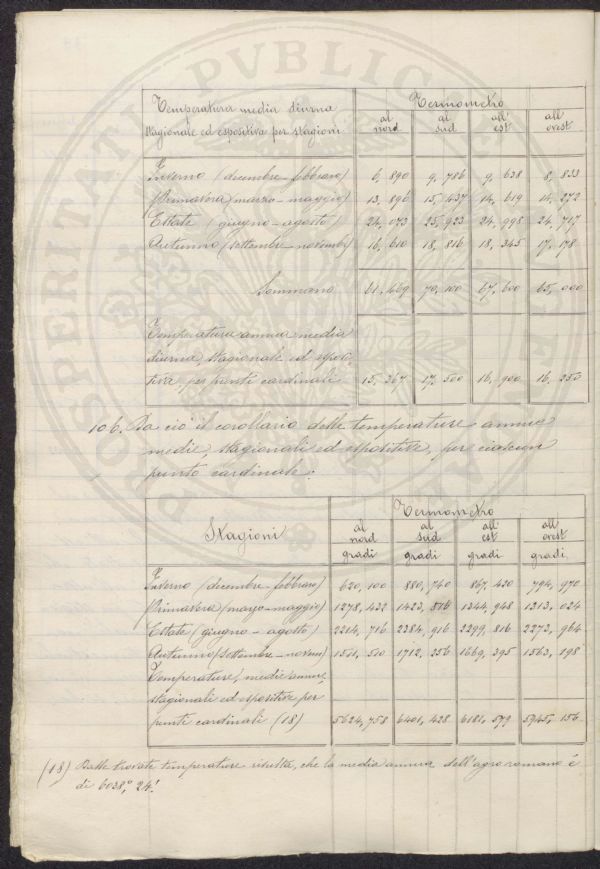 PROSPERITATI PVBLICAE
Temperatura media diurna
stagionale ed espositiva per stagioni
Termometro
al nord al sud all' est all' ovest
Inverno (decembre - febbraro) 6, 890 9, 786 9, 638 8, 833
Primavera (marzo - maggio) 13, 896 15, 437 14, 619 14, 272
Estate (giugno - agosto) 24, 073 25, 923 24, 998 24, 717
Autunno (settembre - novembr) 16, 610 18, 816 18, 345 17, 178
Sommano 61, 469 70, 100 67, 600 65, 000
Temperatura annua media
diurna, stagionale ed esposi-
tiva per punti cardinali 15, 367 17, 500 16, 900 16, 250
106. Da ciò il corollario delle temperature annue
medie, stagionali ed espositive, per ciascun
punto cardinale:
Stagioni
Termometro
al nord al sud all' est all' ovest
gradi gradi gradi gradi
Inverno (decembre - febbraro) 620, 100 880, 740 867, 420 794, 970
Primavera (marzo - maggio) 1278, 432 1423, 516 1344, 948 1313, 024
Estate (giugno - agosto) 2214, 716 2384, 916 2299, 816 2273, 964
Autunno (settembre - novem) 1511, 510 1712, 256 1669, 395 1563, 198
Temperature medie annue,
stagionali ed espositive per
punti cardinali (18) 5624, 758 6401, 428 6181, 579 5945, 156
(18) Dalle trovate temperature risulta, che la media annua dell'agro romano è
di 6038,° 24!